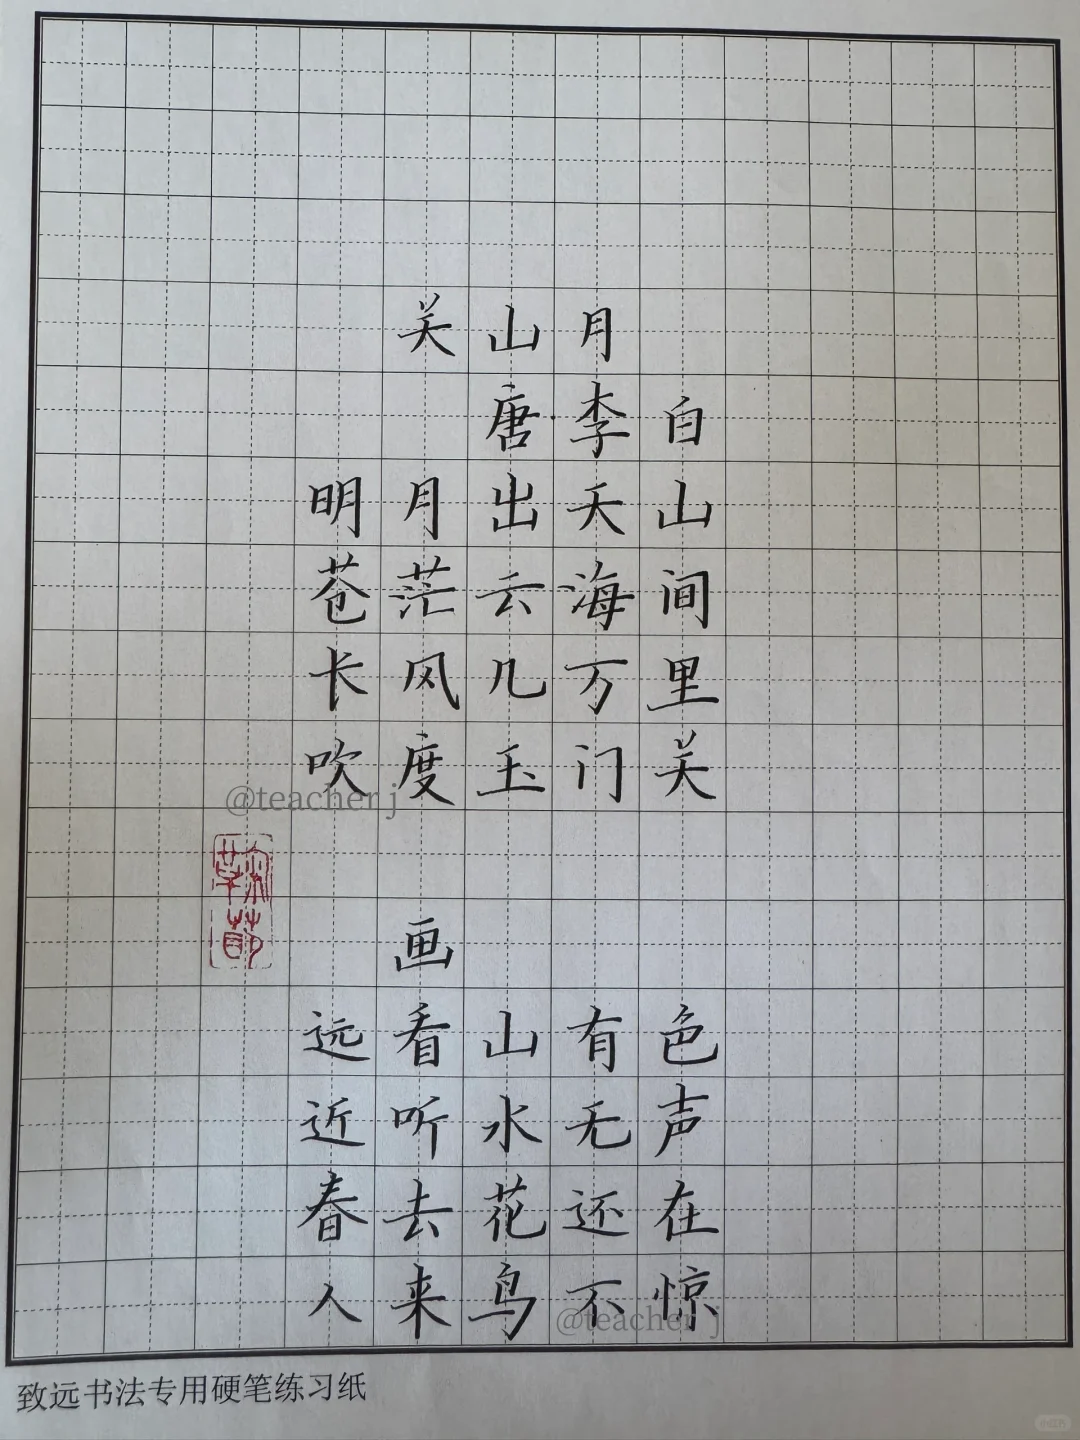 关山月
唐·李白
明月出天山
苍茫云海间
长风几万里
吹度玉门关
@teacher j
画
远看山有色
近听水无声
春去花还在
人来鸟不惊
@teacher j
致远书法专用硬笔练习纸
小红书